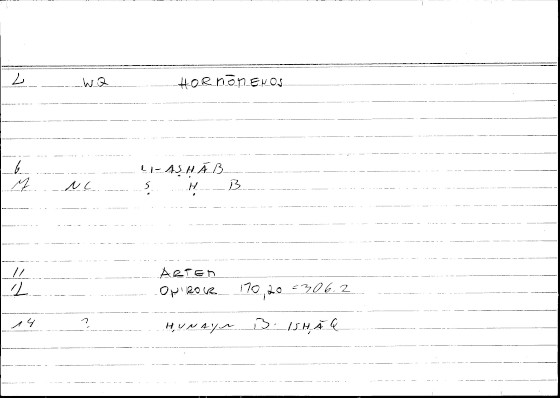 2 WQ HORMŌMENOS
6 LI-AṢḤĀB
7 NC Ṣ Ḥ B
11 ARTEM
12 ONIROCR 170,20 = 306.2
14 ? ḤUNAYN B. ISḤĀQ